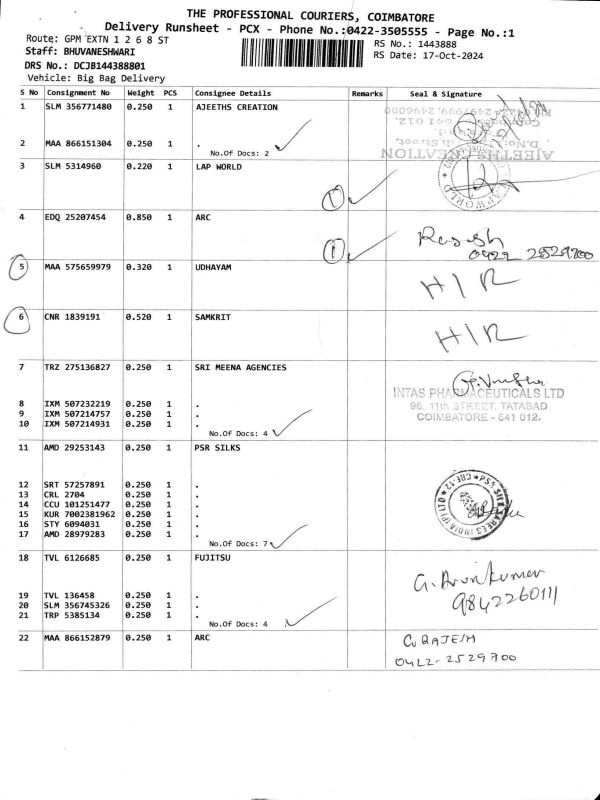 THE PROFESSIONAL COURIERS, COIMBATORE
Delivery Runsheet - PCX - Phone No.:0422-3505555 - Page No.:1
Route: GPM EXTN 1 2 6 8 ST
RS No.: 1443888
Staff: BHUVANESHWARI
RS Date: 17-Oct-2024
DRS No.: DCJB144388801
Vehicle: Big Bag Delivery
S No Consignment No Weight PCS Consignee Details Remarks Seal & Signature
1 SLM 356771480 0.250 1 AJEETHS CREATION
641 012.
2 MAA 866151304 0.250 1 .
No.Of Docs: 2
AJEETHS CREATION
3 SLM 5314960 0.220 1 LAP WORLD
LAP WORLD
1
4 EDQ 25207454 0.850 1 ARC
1 Rajesh
0422 2529700
5 MAA 575659979 0.320 1 UDHAYAM
H/R
6 CNR 1839191 0.520 1 SAMKRIT
H/R
7 TRZ 275136827 0.250 1 SRI MEENA AGENCIES
INTAS PHARMACEUTICALS LTD
8 IXM 507232219 0.250 1 .
96, 11th STREET, TATABAD
9 IXM 507214757 0.250 1 .
COIMBATORE - 641 012.
10 IXM 507214931 0.250 1 .
No.Of Docs: 4
11 AMD 29253143 0.250 1 PSR SILKS
12 SRT 57257891 0.250 1 .
13 CRL 2704 0.250 1 .
14 CCU 101251477 0.250 1 .
15 KUR 7002381962 0.250 1 .
16 STY 6094031 0.250 1 .
17 AMD 28979283 0.250 1 .
No.Of Docs: 7
18 TVL 6126685 0.250 1 FUJITSU
G. Arunkumar
9842260111
19 TVL 136458 0.250 1 .
20 SLM 356745326 0.250 1 .
21 TRP 5385134 0.250 1 .
No.Of Docs: 4
22 MAA 866152879 0.250 1 ARC
G. RAJESH
0422-2529700